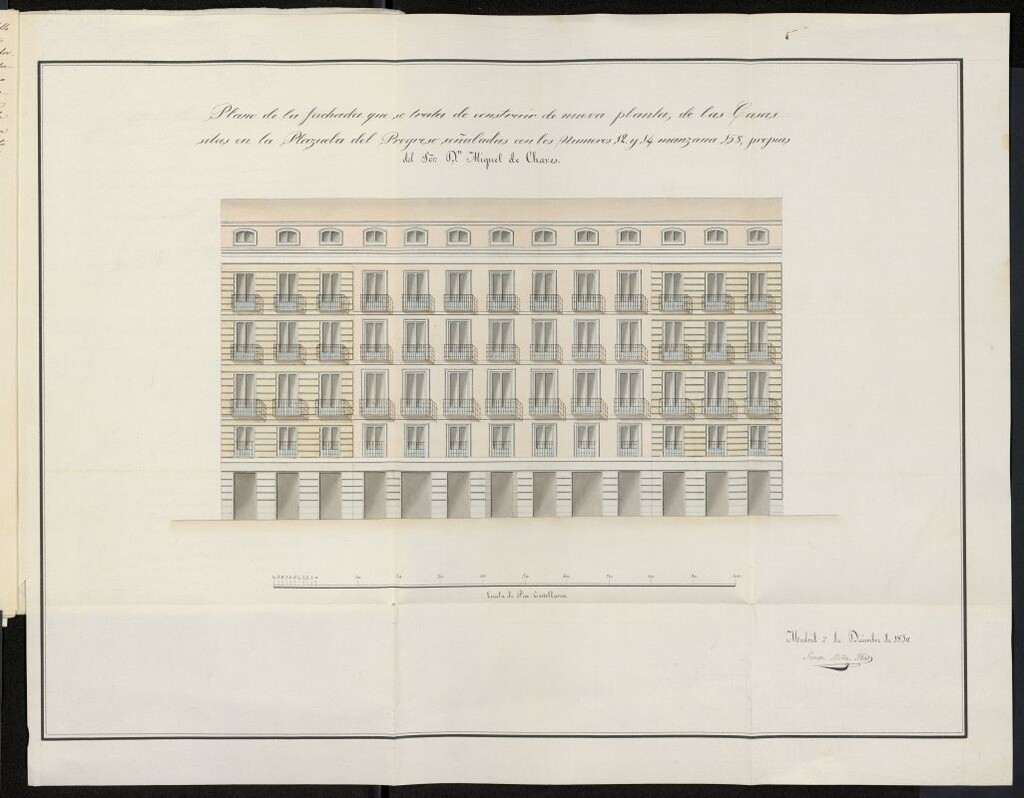 Plano de la fachada que se trata de construir de nueva planta, de las Casas
sitas en la Plazuela del Progreso señaladas con los Numeros 12, y 14, manzana 158, propias
del Sōr. Dⁿ Miguel de Chaves.
Escala de Pies Castellanos
Madrid 2 de Diciembre de 1850